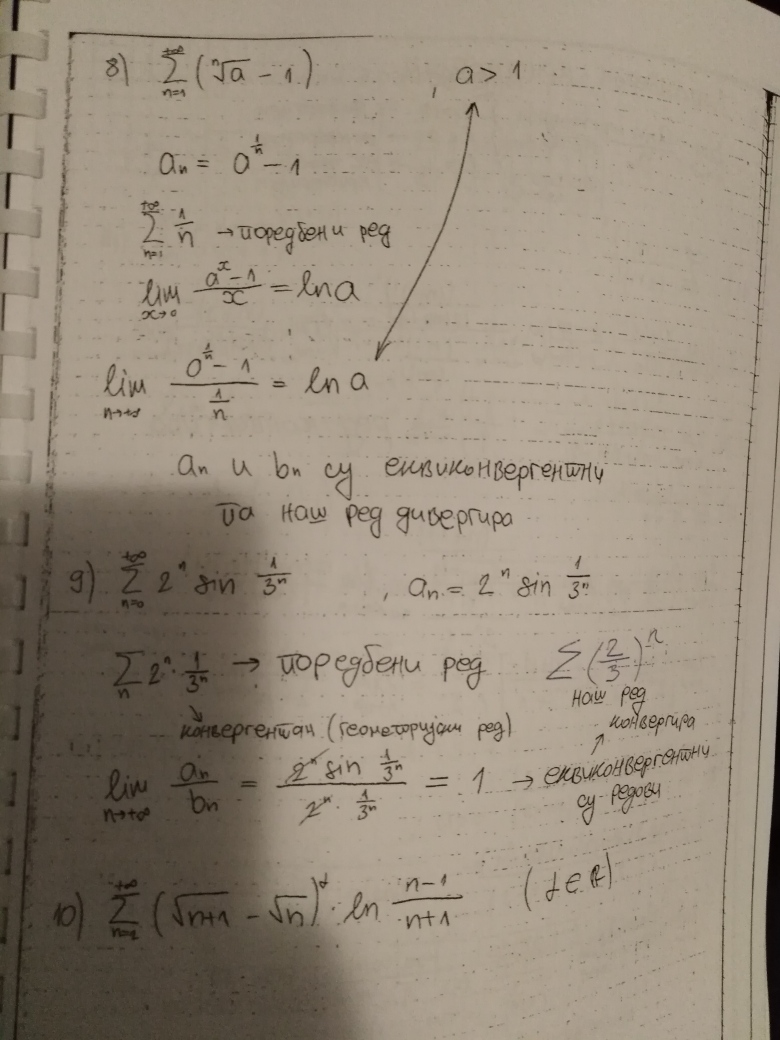 8) $\sum_{n=1}^{+\infty} (\sqrt[n]{a} - 1)$ , $a > 1$
$a_n = a^{\frac{1}{n}} - 1$
$\sum_{n=1}^{+\infty} \frac{1}{n}$ → поредбени ред
$\lim_{x \to 0} \frac{a^x - 1}{x} = \ln a$
$\lim_{n \to +\infty} \frac{a^{\frac{1}{n}} - 1}{\frac{1}{n}} = \ln a$
$a_n$ и $b_n$ су еквиконвергентни
па наш ред дивергира
9) $\sum_{n=0}^{+\infty} 2^n \sin \frac{1}{3^n}$ , $a_n = 2^n \sin \frac{1}{3^n}$
$\sum_n 2^n \cdot \frac{1}{3^n}$ → поредбени ред $\sum (\frac{2}{3})^n$
наш ред
↘ конвергентан (геометоријски ред) конвергира
↗
$\lim_{n \to +\infty} \frac{a_n}{b_n} = \frac{2^n \sin \frac{1}{3^n}}{2^n \cdot \frac{1}{3^n}} = 1$ → еквиконвергентни
су редови
10) $\sum_{n=2}^{+\infty} (\sqrt{n+1} - \sqrt{n})^{\alpha} \cdot \ln \frac{n-1}{n+1}$ $(\alpha \in R)$